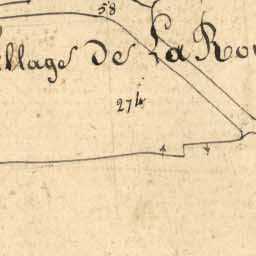 58
illage de La Rou
274